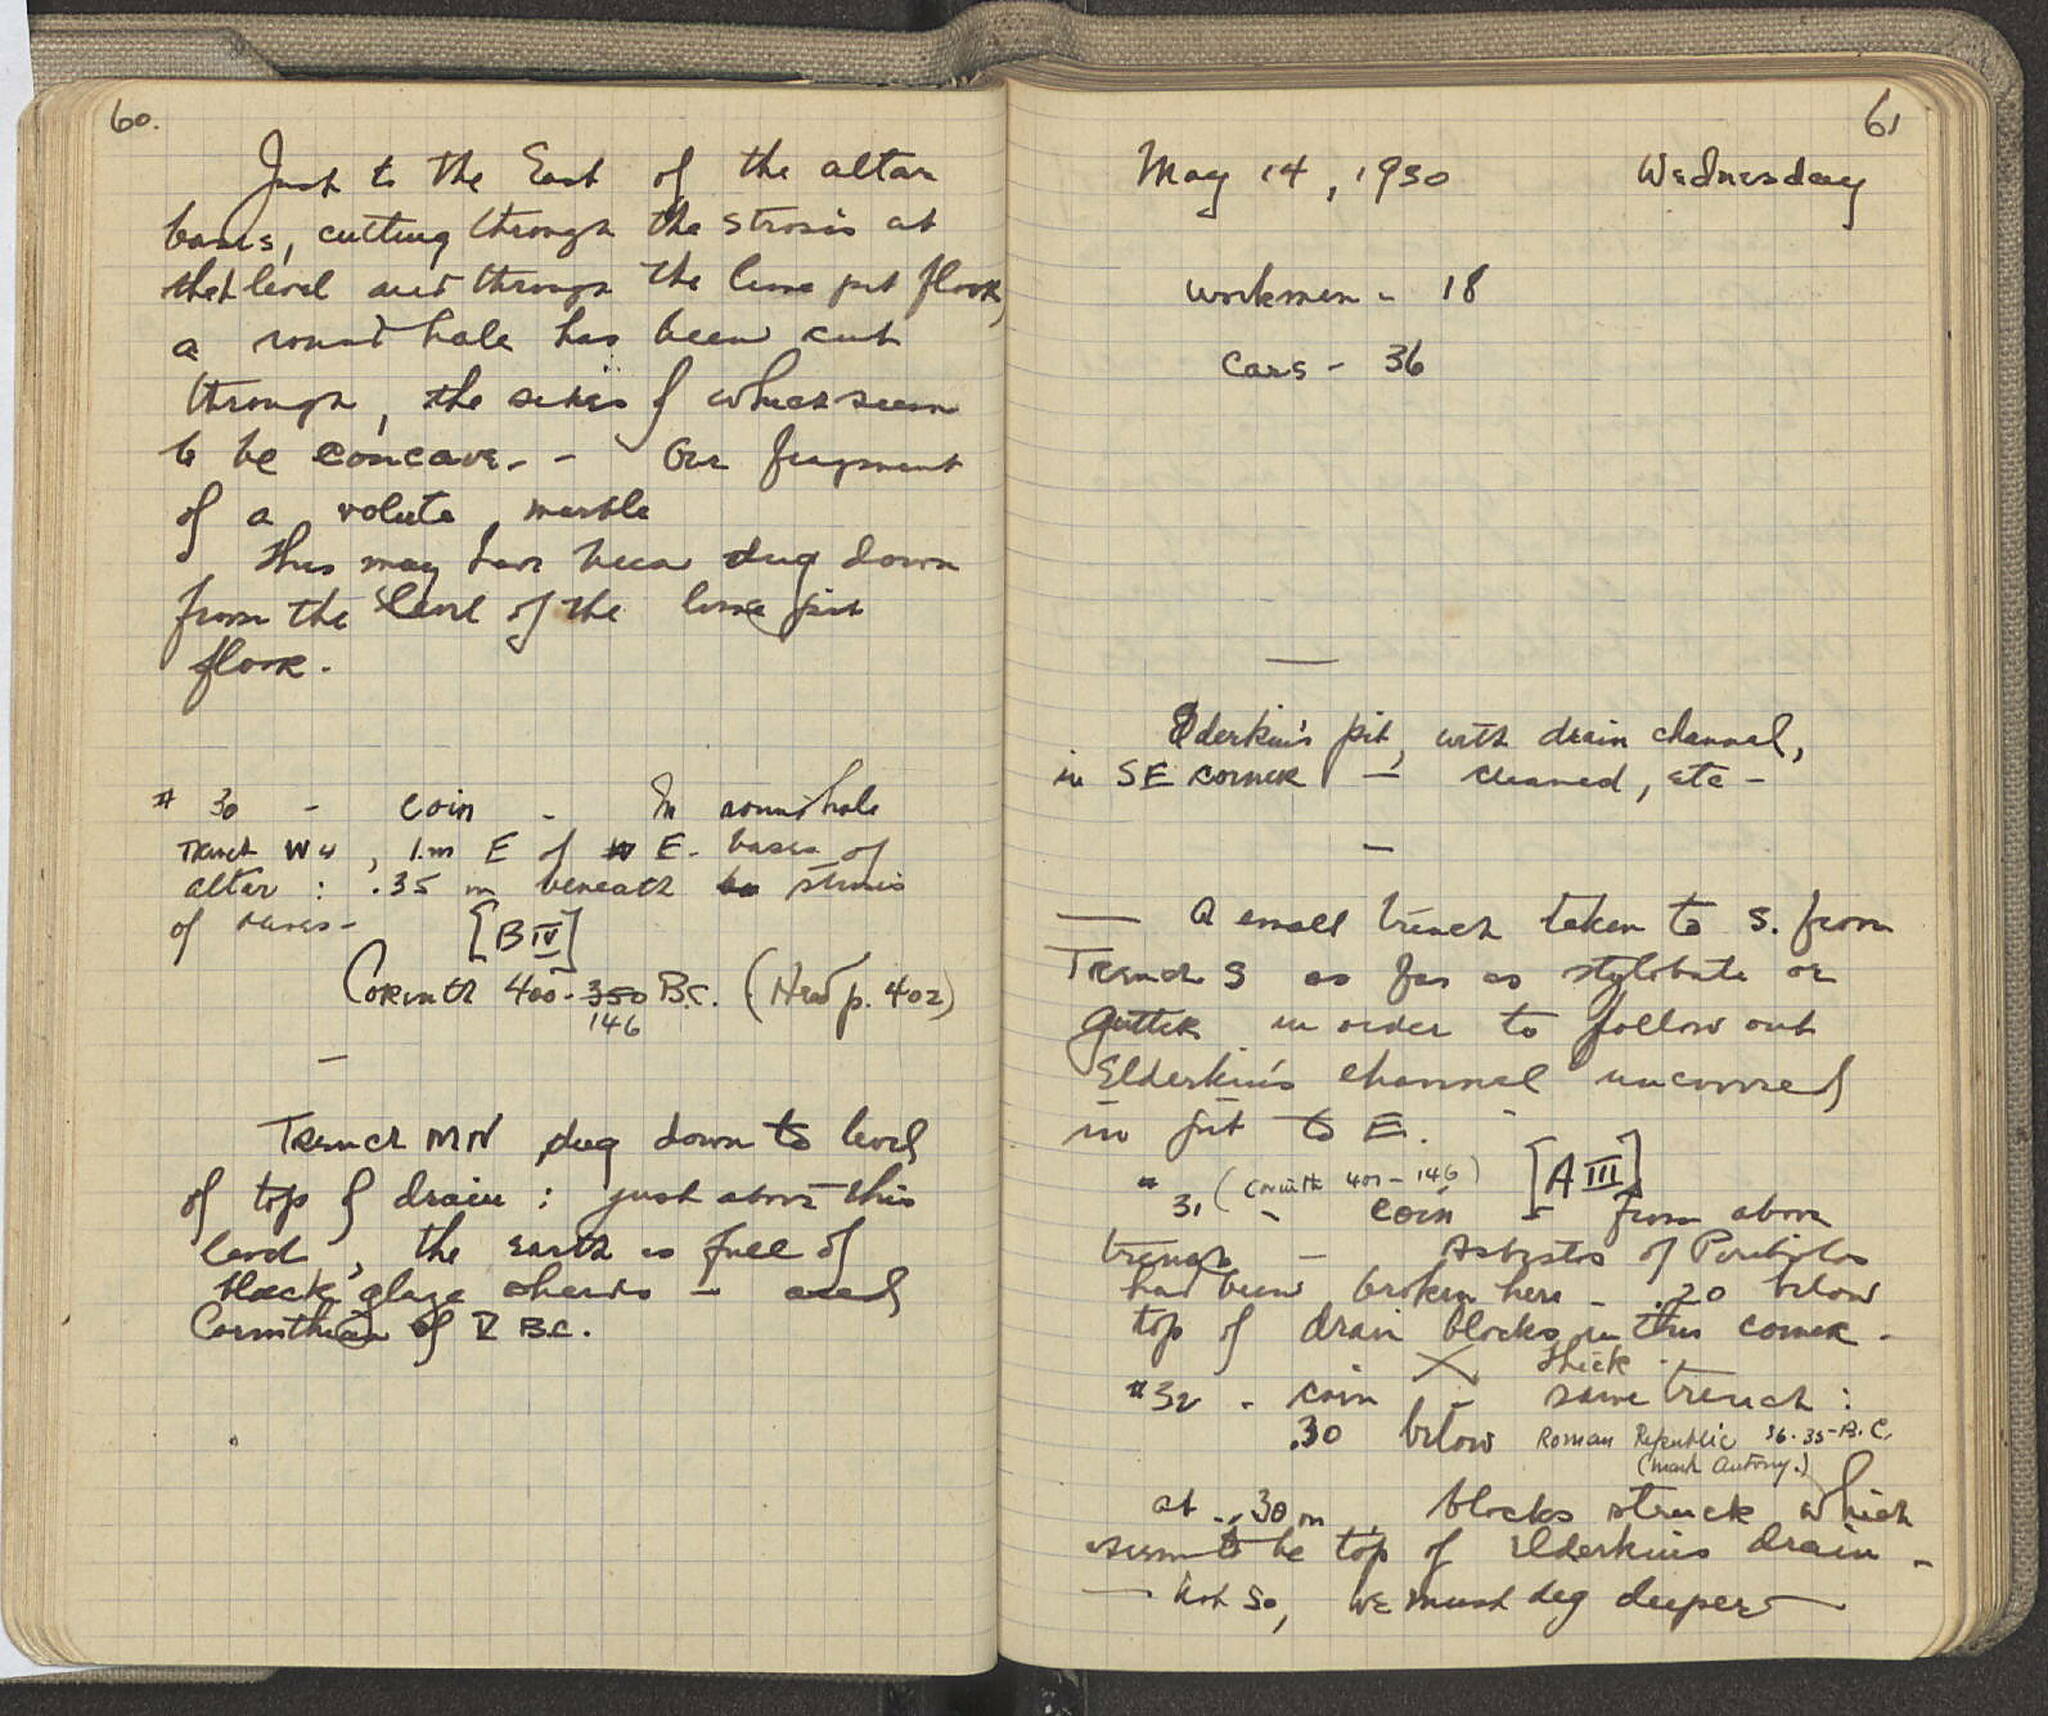 60.
Just to the East of the altar
bases, cutting through the strosis at
that level and through the lime pit floor,
a round hole has been cut
through, the sides of which seem
to be concave. - One fragment
of a volute, marble
This may have been dug down
from the level of the lime pit
floor.
# 30 - coin - In round hole
Trench W 4, 1.m E of E. bases of
altar : .35 m beneath strosis
of
[B IV]
Corinth 400-350 B.C. (Head p. 402)
146
—
Trench MN dug down to level
of top of drain : just above this
level, the earth is full of
black glaze sherds - and
Corinthian of V B.C.
61
May 14, 1930 Wednesday
workmen - 18
cars - 36
—
Elderkin's pit, with drain channel,
in SE corner — cleaned, etc -
—
— A small trench taken to S. from
Trench S as far as stylobate or
gutter in order to follow out
Elderkin's channel uncovered
in pit to E.
[A III]
# 31 (Corinth 400-146)
- coin - from above
trench - Asbestos of Peribolos
had been broken here - .20 below
top of drain blocks in this corner -
X thick -
#32 - coin - same trench :
.30 below Roman Republic 36-35-B.C.
(Mark Antony.)
at -.30 m, blocks struck which
seem to be top of Elderkin's drain -
— Not so, we must dig deeper —